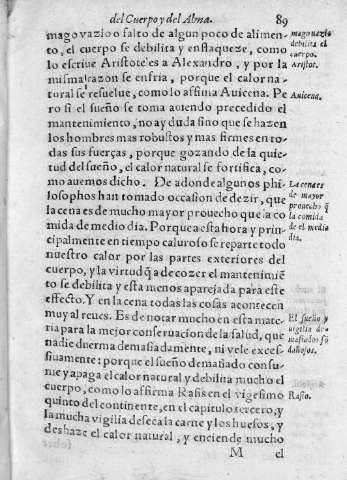 del Cuerpo y del Alma. 89
mago vazio o falto de algun poco de alimen-
to, el cuerpo se debilita y enflaqueze, como
lo escriue Aristoteles a Alexandro, y por la
misma razon se enfria, porque el calor na-
tural se resuelue, como lo affirma Auicena. Pe
ro si el sueño se toma auiendo precedido el
mantenimiento, no ay duda sino que se hazen
los hombres mas robustos y mas firmes en to-
das sus fuerças, porque gozando de la quie-
tud del sueño, el calor natural se fortifica, co-
mo auemos dicho. De adonde algunos phi-
losophos han tomado occasion de dezir, que
la cena es de mucho mayor prouecho que la co
mida de medio dia. Porque a esta hora y prin-
cipalmente en tiempo caluroso se reparte todo
nuestro calor por las partes exteriores del
cuerpo, y la virtud q̃ a de cozer el mantenimiẽ
to se debilita y esta menos aparejada para este
effecto. Y en la cena todas las cosas acontecen
muy al reues. Es de notar mucho en esta mate-
ria para la mejor conseruacion de la salud, que
nadie duerma demasiadamente, ni vele exces-
siuamente: porque el sueño demasiado consu-
me y apaga el calor natural y debilita mucho el
cuerpo, como lo affirma Rasis en el vigesimo
quinto del continente, en el capitulo tercero, y
la mucha vigilia deseca la carne y los huesos, y
deshaze el calor natural, y enciende mucho
M el
mago vazio
debilita el
cuerpo.
Aristot.
Auicena.
La cena es
de mayor
prouecho q̃
la comida
de el medio
dia.
El sueño y
vigilia de-
masiados sõ
dañosos.
Rasis.